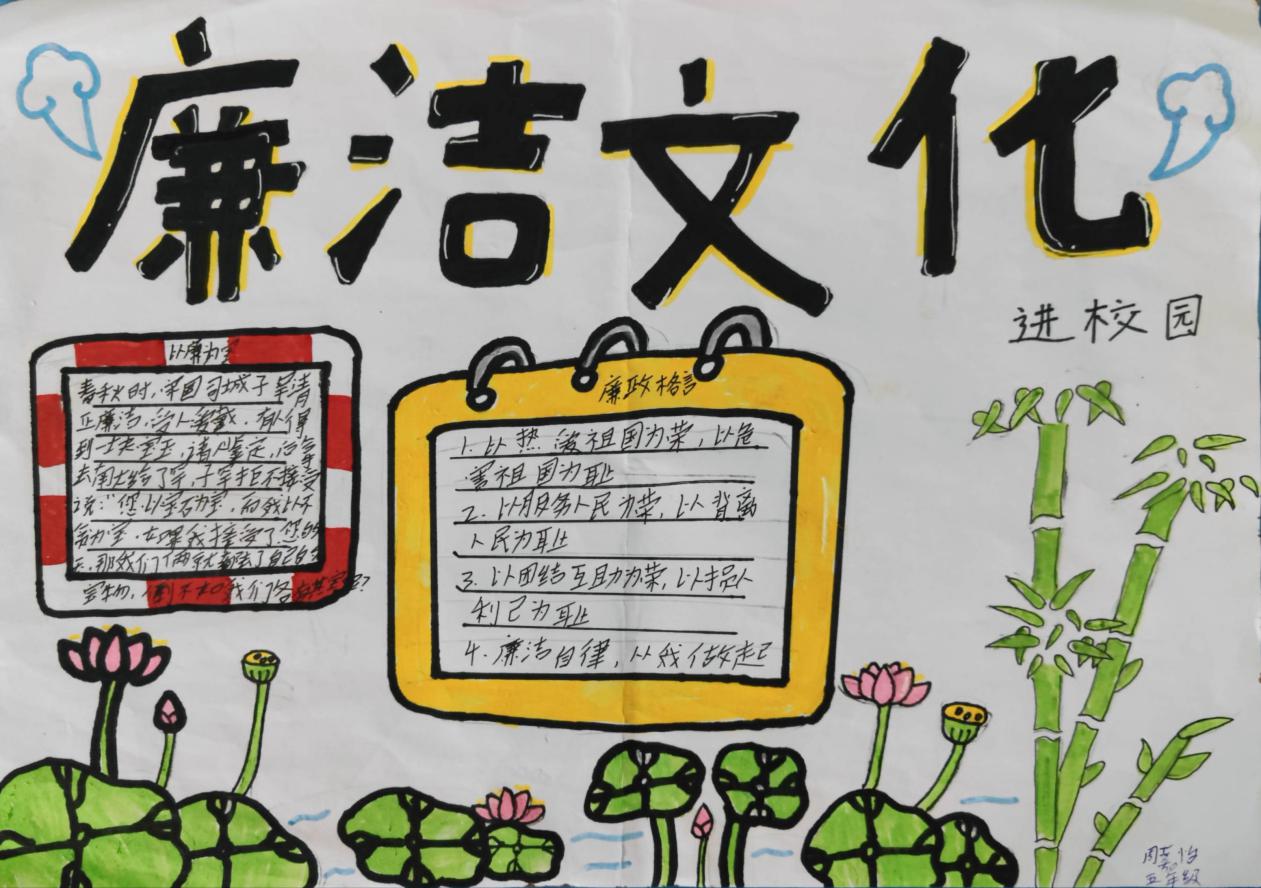 廉洁文化
进校园
以廉为宝
春秋时,宋国司城子罕清
正廉洁,受人爱戴,有人得
到一块宝玉,请人鉴定,后拿
去献给了子罕,子罕拒不接受
说:“您以宝石为宝,而我以不
贪为宝,如果我接受了您的
玉,那我们俩就都失了自己的
宝物,倒不如我们各
廉政格言
1.以热爱祖国为荣,以危
害祖国为耻
2.以服务人民为荣,以背离
人民为耻
3.以团结互助为荣,以损人
利己为耻
4.廉洁自律,从我做起
周嘉怡
五年级